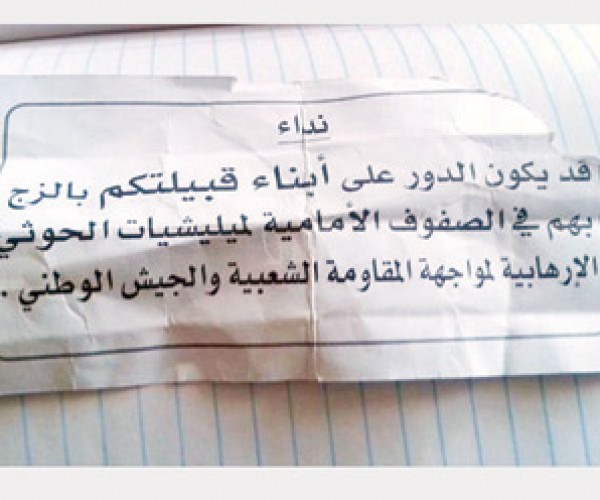 نداء
قد يكون الدور على أبناء قبيلتكم بالزج
بهم في الصفوف الأمامية لميليشيات الحوثي
الإرهابية لمواجهة المقاومة الشعبية والجيش الوطني .